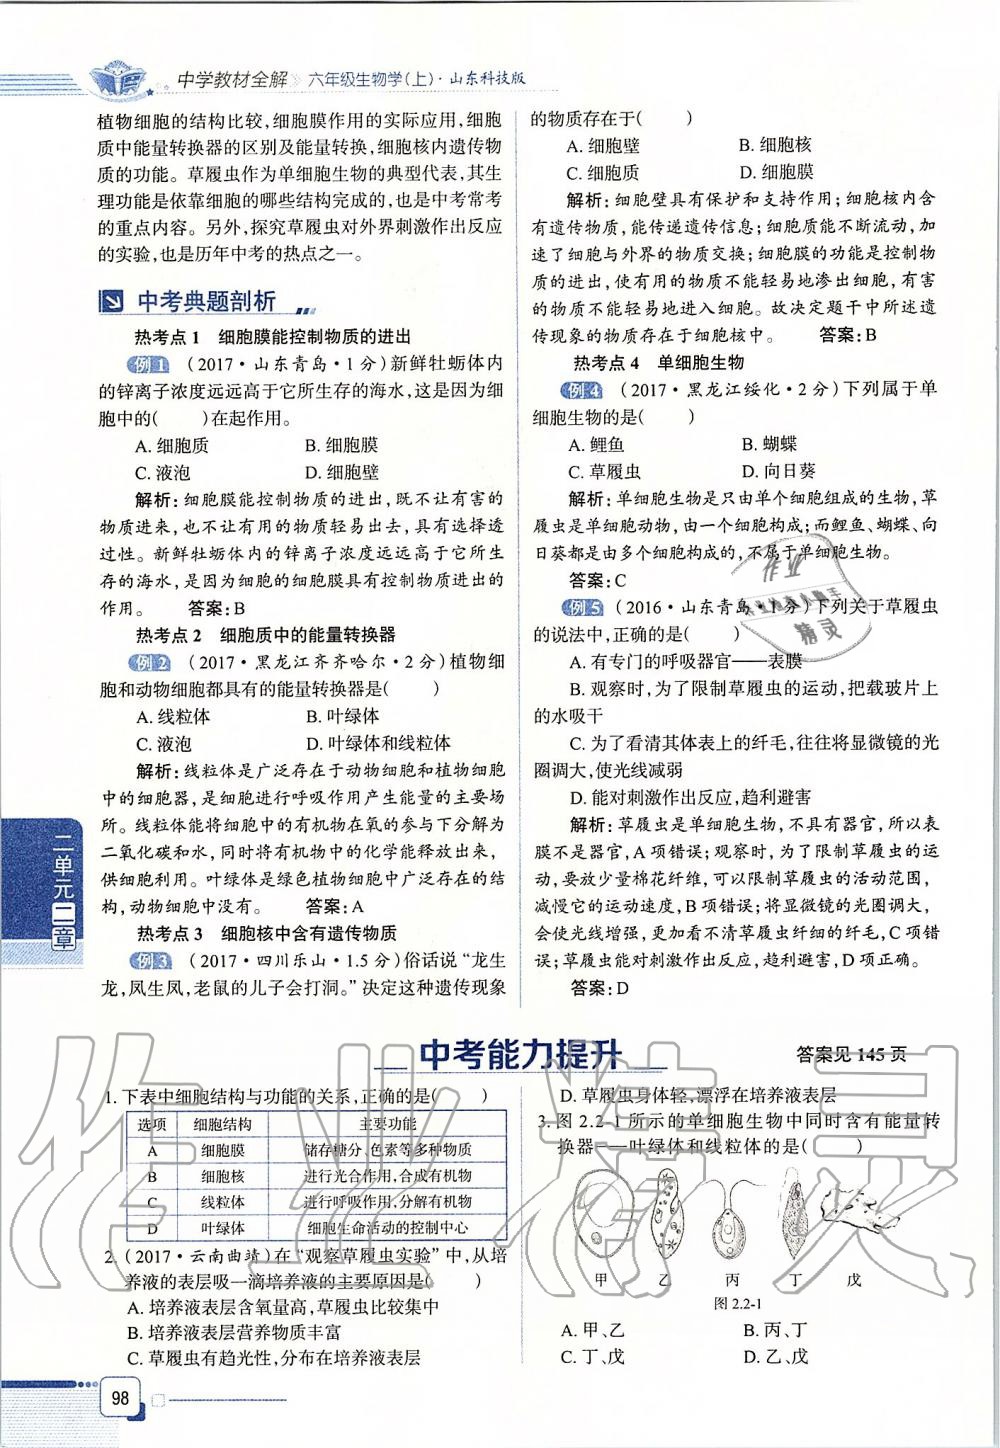 中学教材全解 六年级生物学(上)·山东科技版
植物细胞的结构比较,细胞膜作用的实际应用,细胞
质中能量转换器的区别及能量转换,细胞核内遗传物
质的功能。草履虫作为单细胞生物的典型代表,其生
理功能是依靠细胞的哪些结构完成的,也是中考常考
的重点内容。另外,探究草履虫对外界刺激作出反应
的实验,也是历年中考的热点之一。
中考典题剖析
热考点1 细胞膜能控制物质的进出
例1 (2017·山东青岛·1分)新鲜牡蛎体内
的锌离子浓度远远高于它所生存的海水,这是因为细
胞中的( )在起作用。
A. 细胞质 B. 细胞膜
C. 液泡 D. 细胞壁
解析:细胞膜能控制物质的进出,既不让有害的
物质进来,也不让有用的物质轻易出去,具有选择透
过性。新鲜牡蛎体内的锌离子浓度远远高于它所生
存的海水,是因为细胞的细胞膜具有控制物质进出的
作用。 答案:B
热考点2 细胞质中的能量转换器
例2 (2017·黑龙江齐齐哈尔·2分)植物细
胞和动物细胞都具有的能量转换器是( )
A. 线粒体 B. 叶绿体
C. 液泡 D. 叶绿体和线粒体
解析:线粒体是广泛存在于动物细胞和植物细胞
中的细胞器,是细胞进行呼吸作用产生能量的主要场
所。线粒体能将细胞中的有机物在氧的参与下分解为
二氧化碳和水,同时将有机物中的化学能释放出来,
供细胞利用。叶绿体是绿色植物细胞中广泛存在的结
构,动物细胞中没有。 答案:A
热考点3 细胞核中含有遗传物质
例3 (2017·四川乐山·1.5分)俗话说“龙生
龙,凤生凤,老鼠的儿子会打洞。”决定这种遗传现象
的物质存在于( )
A. 细胞壁 B. 细胞核
C. 细胞质 D. 细胞膜
解析:细胞壁具有保护和支持作用;细胞核内含
有遗传物质,能传递遗传信息;细胞质能不断流动,加
速了细胞与外界的物质交换;细胞膜的功能是控制物
质的进出,使有用的物质不能轻易地渗出细胞,有害
的物质不能轻易地进入细胞。故决定题干中所述遗
传现象的物质存在于细胞核中。 答案:B
热考点4 单细胞生物
例4 (2017·黑龙江绥化·2分)下列属于单
细胞生物的是( )
A. 鲤鱼 B. 蝴蝶
C. 草履虫 D. 向日葵
解析:单细胞生物是只由单个细胞组成的生物,草
履虫是单细胞动物,由一个细胞构成;而鲤鱼、蝴蝶、向
日葵都是由多个细胞构成的,不属于单细胞生物。
答案:C
例5 (2016·山东青岛·1分)下列关于草履虫
的说法中,正确的是( )
A. 有专门的呼吸器官——表膜
B. 观察时,为了限制草履虫的运动,把载玻片上
的水吸干
C. 为了看清其体表上的纤毛,往往将显微镜的光
圈调大,使光线减弱
D. 能对刺激作出反应,趋利避害
解析:草履虫是单细胞生物,不具有器官,所以表
膜不是器官,A项错误;观察时,为了限制草履虫的运
动,要放少量棉花纤维,可以限制草履虫的活动范围,
减慢它的运动速度,B项错误;将显微镜的光圈调大,
会使光线增强,更加看不清草履虫纤细的纤毛,C项错
误;草履虫能对刺激作出反应,趋利避害,D项正确。
答案:D
二单元二章
中考能力提升 答案见145页
1. 下表中细胞结构与功能的关系,正确的是( )
选项 细胞结构 主要功能
A 细胞膜 储存糖分、色素等多种物质
B 细胞核 进行光合作用,合成有机物
C 线粒体 进行呼吸作用,分解有机物
D 叶绿体 细胞生命活动的控制中心
2. (2017·云南曲靖)在“观察草履虫实验”中,从培
养液的表层吸一滴培养液的主要原因是( )
A. 培养液表层含氧量高,草履虫比较集中
B. 培养液表层营养物质丰富
C. 草履虫有趋光性,分布在培养液表层
D. 草履虫身体轻,漂浮在培养液表层
3. 图2.2-1所示的单细胞生物中同时含有能量转
换器——叶绿体和线粒体的是( )
甲 乙 丙 丁 戊
图2.2-1
A. 甲、乙 B. 丙、丁
C. 丁、戊 D. 乙、戊
98
作业精灵
精灵